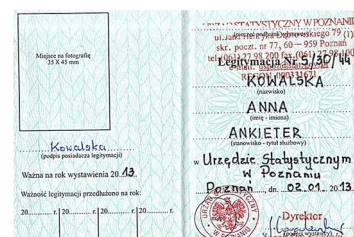 Miejsce na fotografię
35 X 45 mm
Kowalska
(podpis posiadacza legitymacji)
Ważna na rok wystawienia 20 13.
Ważność legitymacji przedłużono na rok:
20........ r. 20........ r. 20........ r. 20........ r.
STATYSTYCZNY W POZNANIU
ul. Jana Henryka Dąbrowskiego 79 (1)
skr. poczt. nr 77, 60 – 959 Poznań
tel. (061) 27 98 200 fax. (061) 27 98 100
Legitymacja Nr 5/30/44
REGON 000331671
KOWALSKA
(nazwisko)
ANNA
(imię - imiona)
ANKIETER
(stanowisko - tytuł służbowy)
w Urzędzie Statystycznym
w Poznaniu
Poznań, dn. 02.01. 2013
Dyrektor